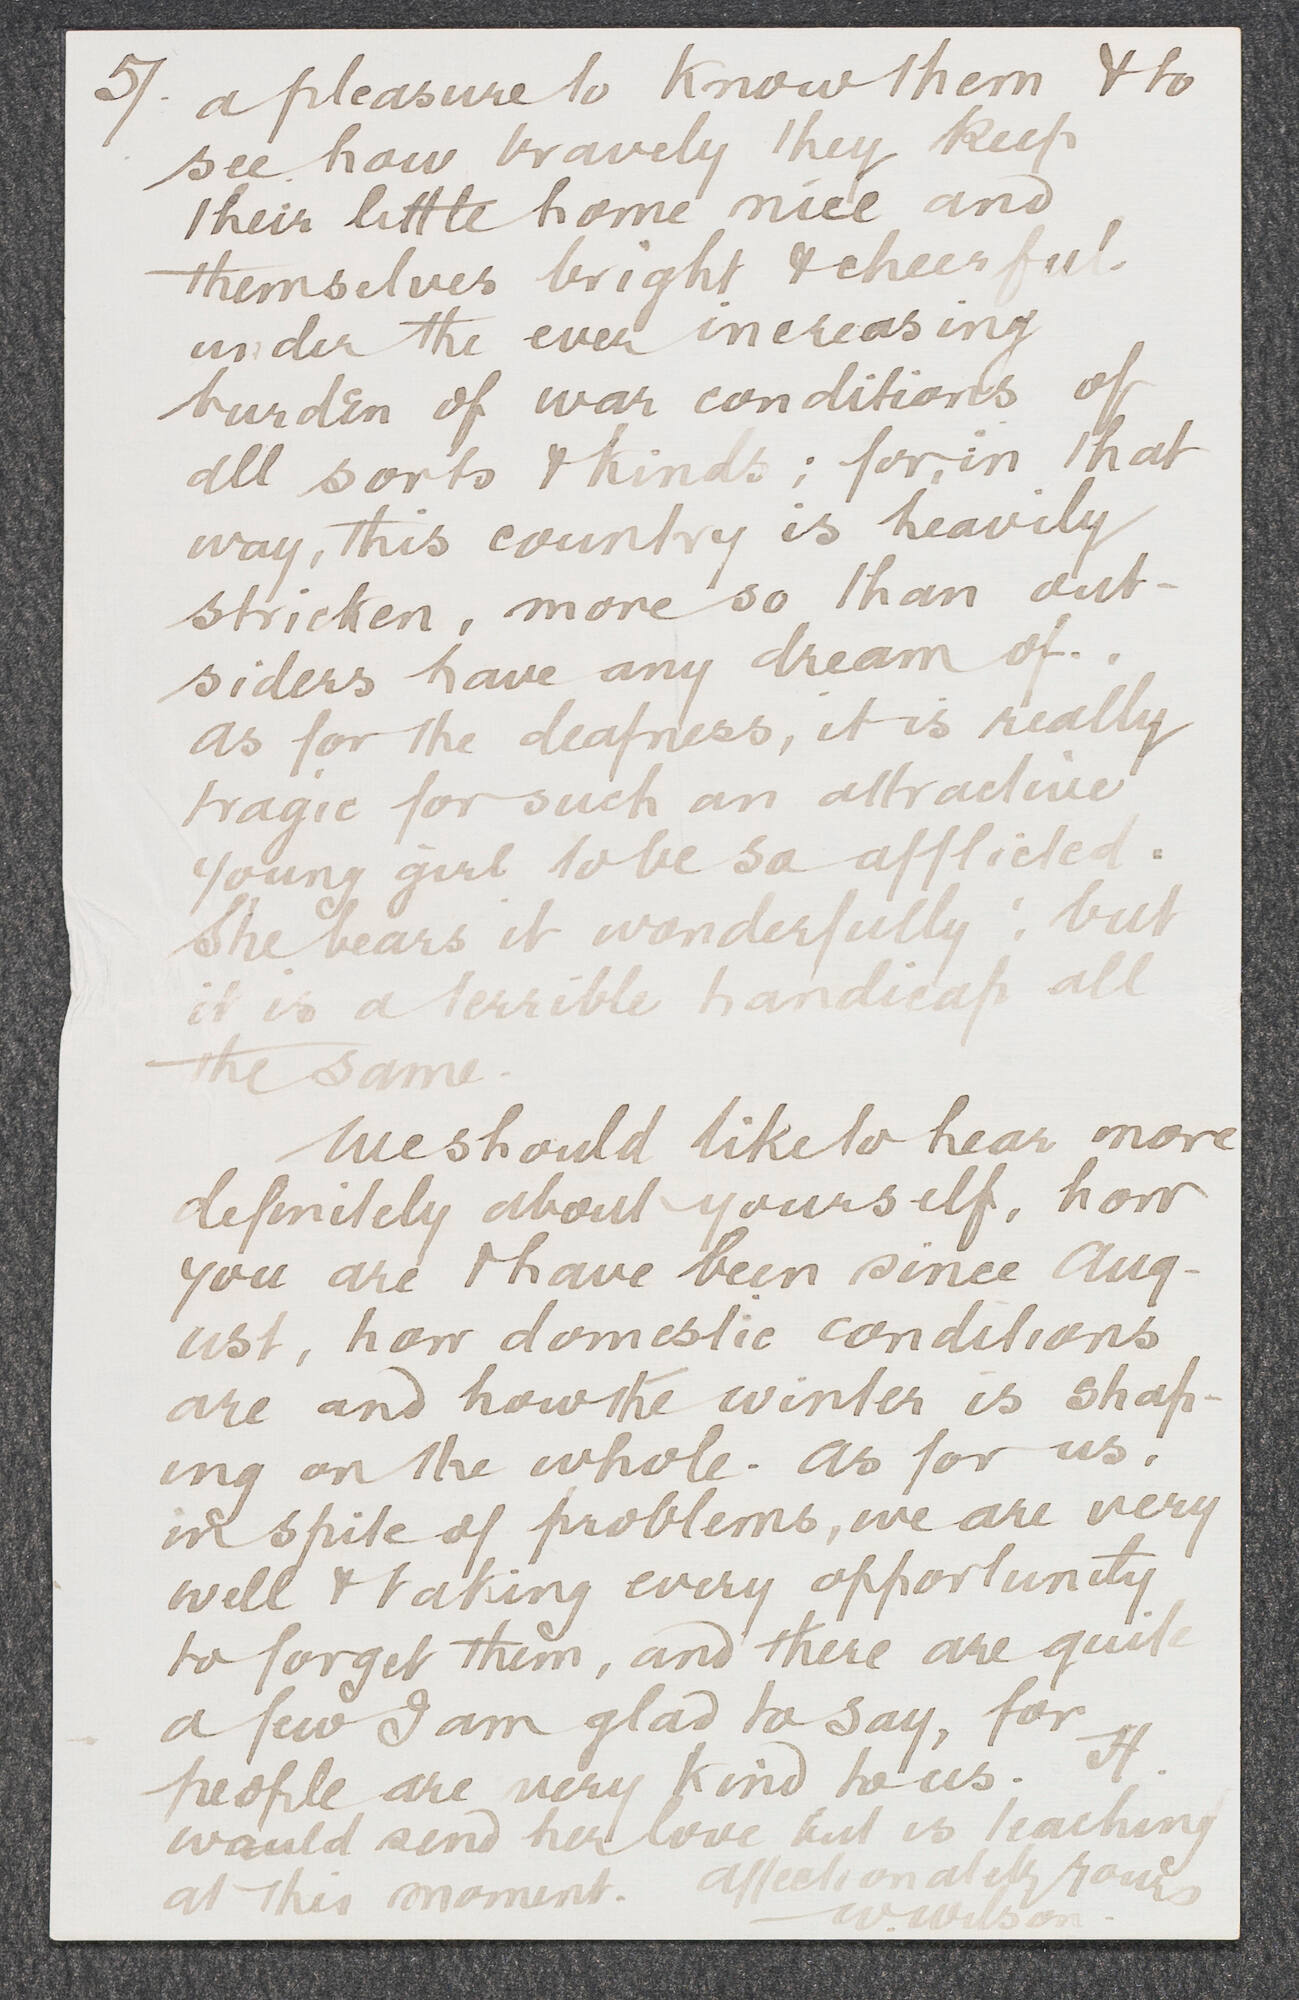 5/. a pleasure to know them & to
see how bravely they keep
their little home nice and
themselves bright & cheerful
under the ever increasing
burden of war conditions of
all sorts & kinds; for, in that
way, this country is heavily
stricken, more so than out-
siders have any dream of..
As for the deafness, it is really
tragic for such an attractive
young girl to be so afflicted.
She bears it wonderfully; but
it is a terrible handicap all
the same.
We should like to hear more
definitely about yourself, how
you are & have been since Aug-
ust, how domestic conditions
are and how the winter is shap-
ing on the whole. As for us,
in spite of problems, we are very
well & taking every opportunity
to forget them, and there are quite
a few I am glad to say, for
people are very kind to us. H.
would send her love but is teaching
at this moment. Affectionately yours
W. Wilson.